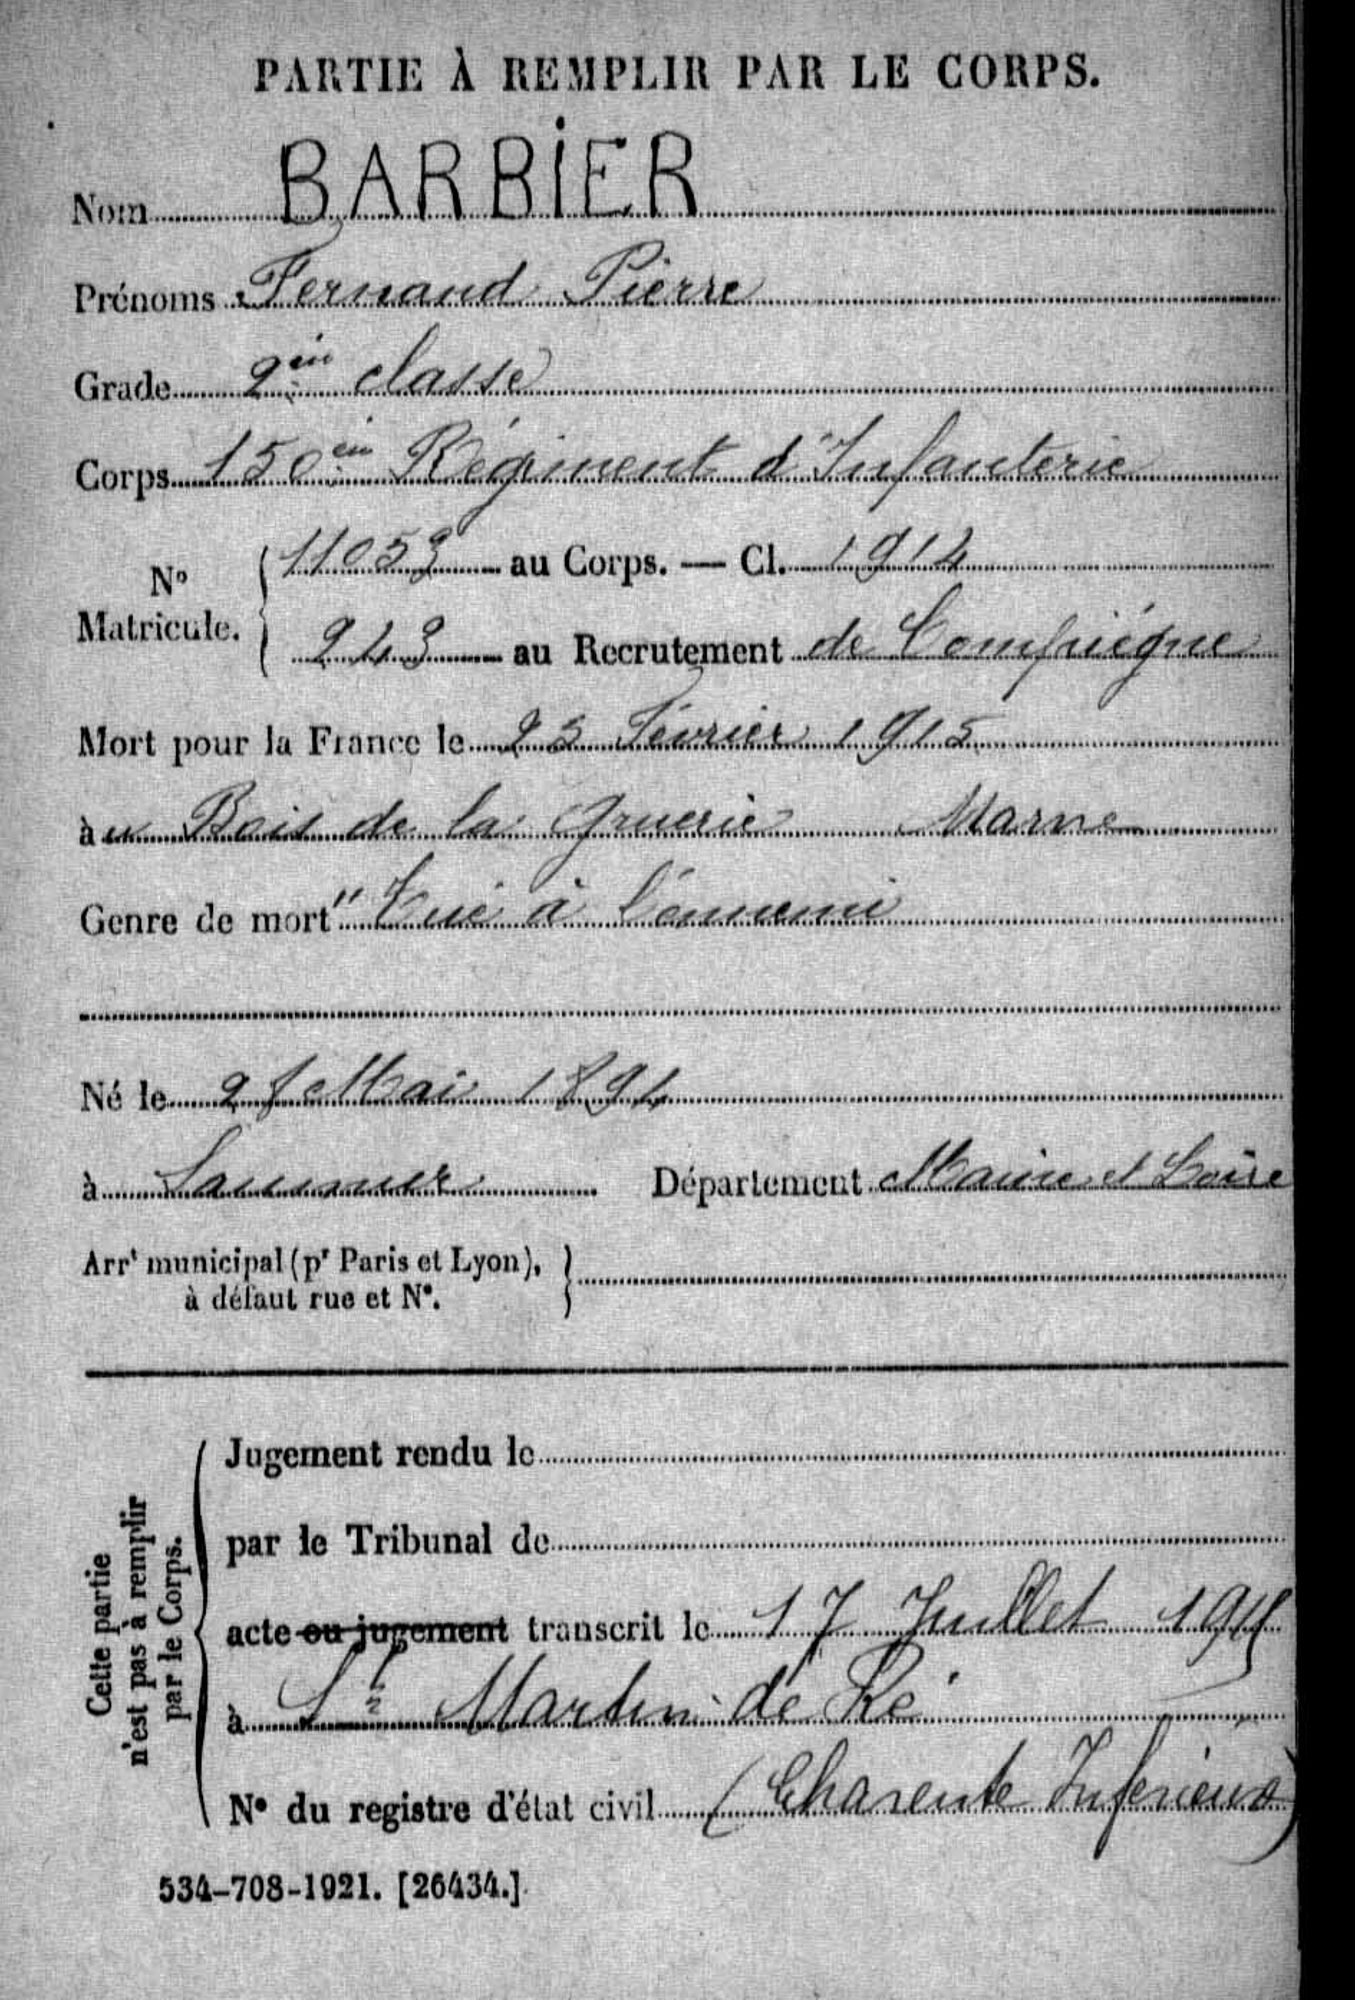 PARTIE À REMPLIR PAR LE CORPS.
Nom BARBIER
Prénoms Fernand Pierre
Grade 2èm classe
Corps 150èm Régiment d'Infanterie
N° Matricule. 11053 au Corps. — Cl. 1914
243 au Recrutement de Compiégne
Mort pour la France le 25 Février 1915
àu Bois de la Gruerie Marne
Genre de mort "Tué à l'ennemi
Né le 28 Mai 1894
à Saumur Département Maine et Loire
Arrt municipal (pr Paris et Lyon),
à défaut rue et N°.
Cette partie
n'est pas à remplir
par le Corps.
Jugement rendu le
par le Tribunal de
acte ou jugement transcrit le 17 Juillet 1915
à St Martin de Ré
N° du registre d'état civil (Charente Inferieure)
534-708-1921. [26434.]